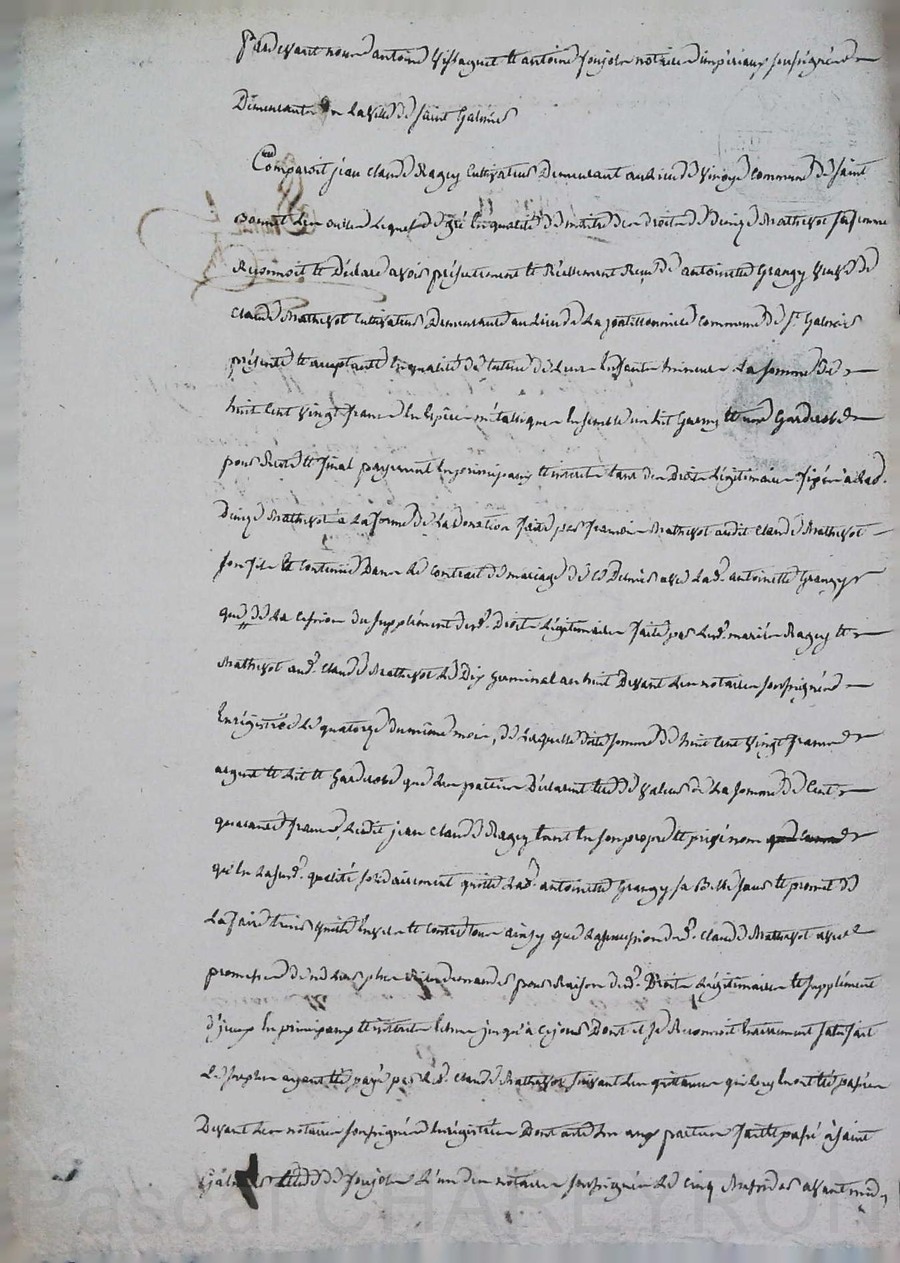 Pardevant nous antoine et antoine Soujols notaires impériaux soussignés
Demeurants en la ville de Saint Galmier
Comparoit jean claude Ragey Cultivateur Demeurant au lieu de commune de Saint
Bonnet les oules lequel de gré En qualité de maitre des droits de Denize Mathevot sa femme
Reconnoit et Déclare avoir présentement et Réellement Reçu de antoinette Grangy veuve de
claude Mathevot Cultivateur Demeurante au Lieu de La commune de St Galmier
présente et acceptante En qualité de tutrice de Leurs Enfants mineurs La somme de
huit Cent vingt francs En Espèces métalliques Ensemble un Lit Garny et une Garderobe
pour Reste et final payement En principaux et interets tant des Droits Légitimaires fixés à Lad.
Denize Mathevot a La forme de La Donation faite par françois Mathevot audit Claude Mathevot
son fils et contenue Dans Le contrat de mariage de Ce Dernier avec Lad. antoinette Grangy
que de La Cession du supplément desd. Droits Légitimaires faite par Lesd. mariés Ragey et
Mathevot aud. Claude Mathevot Le Dix germinal an huit Devant Les notaires soussignés
Enrégistrée Le quatorze du même mois, de Laquelle dite somme de huit Cent vingt francs
argent et Lit et Garderobe que Les parties Déclarent être de valeur de La somme de Cent
quarante francs, Ledit jean Claude Ragey tant En son propre et privé nom
qu'En Lasusd. qualité solidairement quitte Lad. antoinette Grangy sa Belle sœur et promet de
La faire tenir quitte Envers et contre tous ainsy que La succession dud. Claude Mathevot avec
promesse de ne Leur plus Rien demander pour Raison desd. Droits Légitimaires et supplément
d'jceux En principaux et interets Echus jusqu'à Ce jour Dont il se Reconnoit Entierement satisfait
Le surplus ayant été payé par Led. Claude Mathevot suivant Les quittances qui Luy En ont été passées
Devant Les notaires soussignés Enrégistrées Dont acte Lu aux parties fait et passé à Saint
Galmier Etude de Soujols L'un des notaires soussignés Le Cinq avant midy